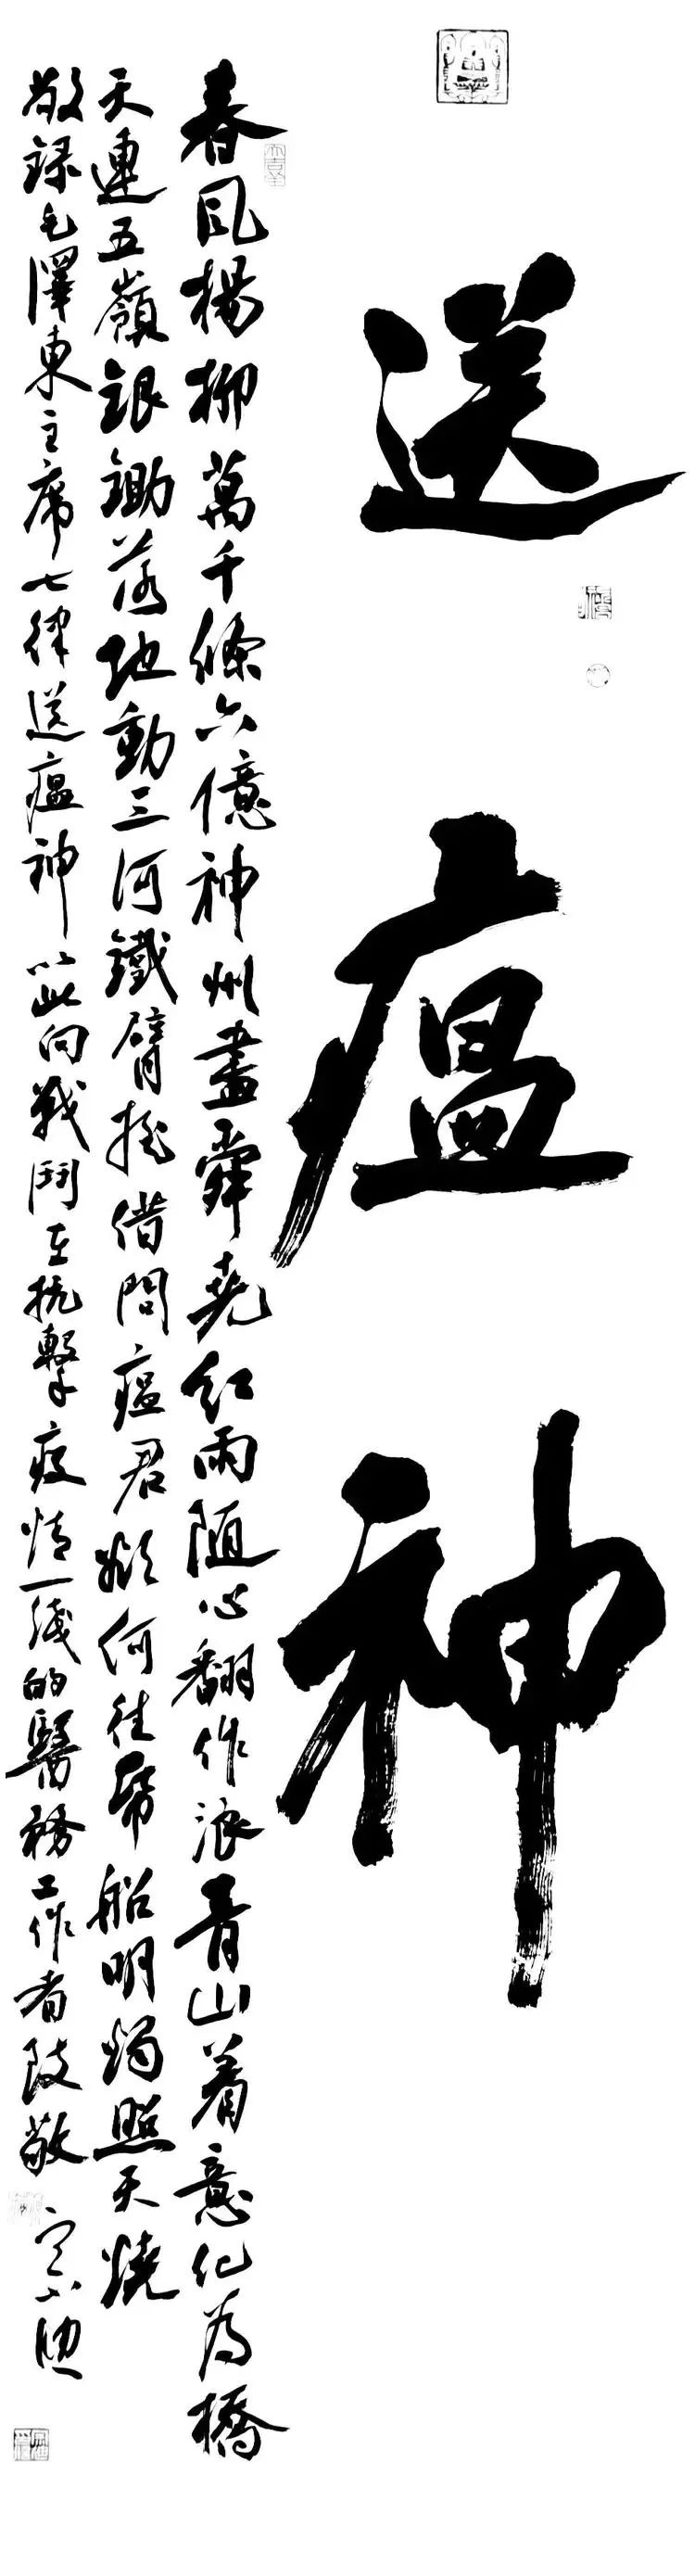 送瘟神
春風楊柳萬千條六億神州盡舜堯紅雨随心翻作浪青山着意化為橋
天連五嶺銀鋤落地動三河鐵臂摇借問瘟君欲何往帋船明燭照天燒
敬録毛澤東主席七律送瘟神以此向戰鬥在抗擊疫情一綫的醫務工作者致敬